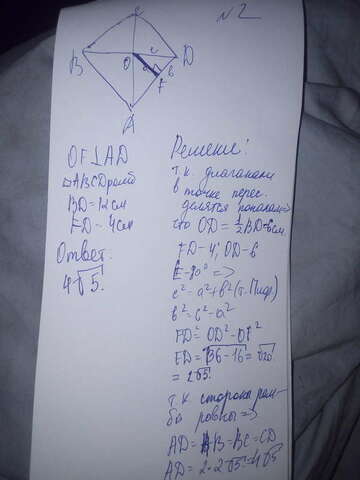 №2
C
B
O
c
D
a
b
F
A
OF⊥AD
ABCD ромб
BD=12см
FD-4см
Ответ:
4√5.
Решение:
т.к. диагонали
в точке перес.
делятся пополам
что OD=½BD=6см.
FD-4; OD-6
F-90° =>
c²=a²+b² (т. Пиф.)
b²=c²-a²
FD²=OD²-OF²
FD=√36-16=√20
=2√5.
т.к. стороны ром-
ба равны =>
AD=AB=BC=CD
AD=2·2√5=4√5